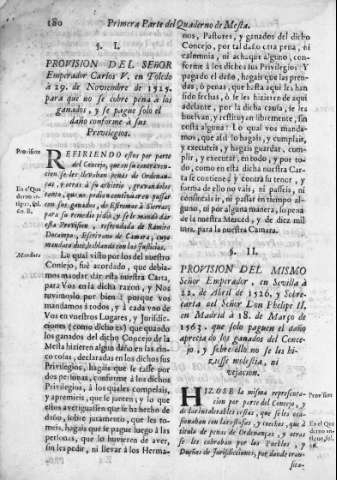 180 Primera Parte del Quaderno de Mesta.
§. I.
PROVISION DEL SEÑOR
Emperador Carlos V. en Toledo
à 29. de Noviembre de 1525.
para que no se cobre pena à los
ganados, y se pague solo el
daño conforme à sus
Previlegios.
Provision
REFIRIENDO estos por parte
del Concejo, que en su contraven-
cion se les llevaban penas de Ordenan-
zas, y otras à su arbitrio, gravandoles
tanto, que no podian continuar en passar
con sus ganados de Estremos à Sierras;
para su remedio pidió, y se le mandò dar
esta Provision, refrendada de Ramiro
Docampo, Escrivano de Camara, cuyo
mandato dice, hablando con las Justicias.
En el Qua
derno an-
tiguo, fol.
Mandato
Lo qual visto por los del nuestro
Consejo, fuè acordado, que debia-
mos mandar dàr esta nuestra Carta,
para Vos en la dicha razon, y Nos
tuvimoslo por bien; porque vos
mandamos à todos, y à cada uno de
Vos en vuestros Lugares, y Jurisdic-
ciones (como dicho es) que quando
los ganados del dicho Concejo de la
Mesta hizieren algun daño en las cin-
co cosas, declaradas en los dichos sus
Privilegios, hagais que se tasse por
dos personas, conforme à los dichos
Privilegios, à los quales compelais,
y apremieis, que se junten, y lo que
estos averiguassen que se ha hecho de
daño, sobre juramento, que les to-
meis, hagais que se pague luego à las
personas, que lo huvieren de aver,
sin les pedir, ni llevar à los Herma-
nos, Pastores, y ganados del dicho
Concejo, por tal daño otra pena, ni
calomnia, ni achaque alguno, con-
forme à los dichos sus Privilegios: Y
pagado el daño, hagais que las pren-
das, ò penas, que hasta aqui les han
sido fechas, ò se les hizieren de aqui
adelante, por la dicha causa, se les
buelvan, y restituyan libremente, sin
costa alguna: Lo qual vos manda-
mos, que assi lo hagais, y cumplais,
y executeis, y hagais guardar, cum-
plir, y executar, en todo, y por to-
do, como en esta dicha nuestra Car-
ta se contiene; y contra la tenor, y
forma de ello no vais, ni passeis, ni
consintais ir, ni passar en tiempo al-
guno, ni por alguna manera, so pena
de la nuestra Merced, y de diez mil
mrs. para la nuestra Camara.
§. II.
PROVISION DEL MISMO
Señor Emperador, en Sevilla à
22. de Abril de 1526. y Sobre-
carta del Señor Don Phelipe II,
en Madrid à 18. de Março de
1563. que solo paguen el daño
apreciado los ganados del Conce-
jo, y sobre ello no se les hi-
ziesse molestia, ni
vejacion.
HIZOSE la misma representa-
cion por parte del Concejo, y
de las intolerables costas, que se les oca-
sionaban con las costas, y coechos, que à
titulo de penas de Ordenanças, y otras
se les cobraban por los Pueblos, y
Dueños de Jurisdicciones, por donde tran-
sita-
Provision
En el Qua
derno an-
tiguo, fol.